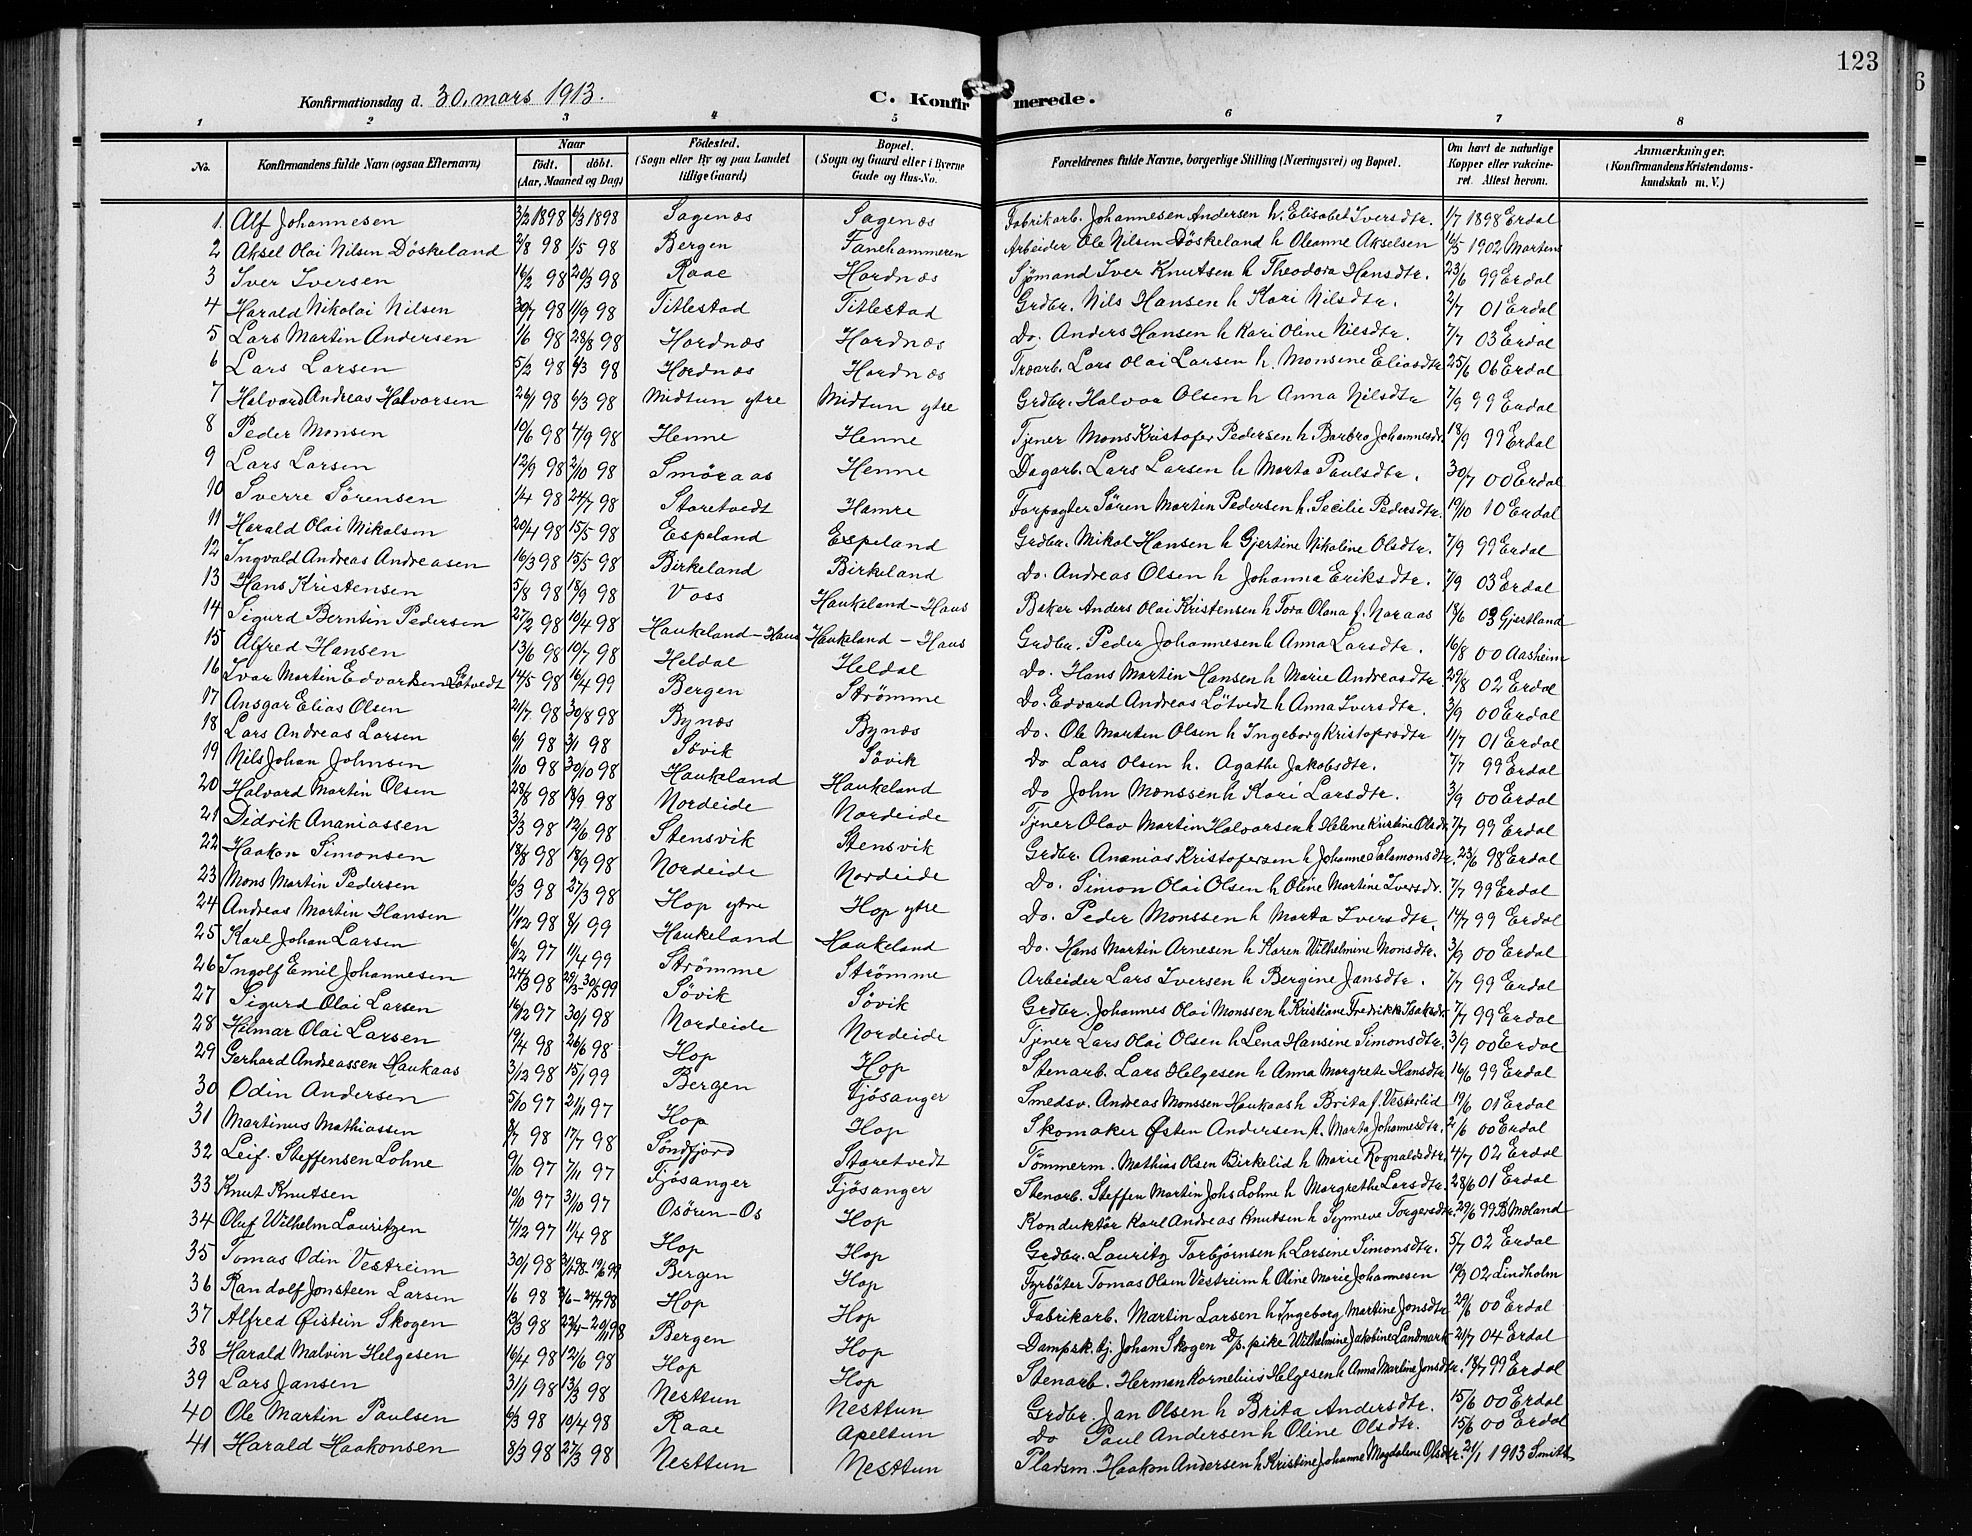 123
6
Konfirmationsdag d. 30. mars 1913.
C. Konfirmerede.
1 2 3 4 5 6 7 8
No. Konfirmandens fulde Navn (ogsaa Efternavn) Naar født. døbt. (Aar, Maaned og Dag) Fødested. (Sogn eller By og paa Landet tillige Gaard) Bopæl. (Sogn og Gaard eller i Byerne Gade og Hus-No. Forældrenes fulde Navne, borgerlige Stilling (Næringsvei) og Bopæl. Om havt de naturlige Kopper eller vakcineret. Attest herom. Anmærkninger. (Konfirmandens Kristendomskundskab m. V.)
1 Alf Johannesen 3/2 1898 6/3 1898 Sagenæs Sagenæs Fabrikarb. Johannesen Andersen h. Elisabet Iversdtr. 1/7 1898 Erdal
2 Aksel Olai Nilsen Döskeland 2/8 98 1/5 98 Bergen Fanehammeren Arbeider Ole Nilsen Döskeland h Oleanne Akselsen 16/5 1902 Martens
3 Iver Iversen 16/2 98 20/3 98 Raae Hordnæs Sjømand Iver Knutsen h Theodora Hansdtr. 23/6 99 Erdal
4 Harald Nikolai Nilsen 30/7 98 11/9 98 Titlestad Titlestad Grdbr. Nils Hansen h Kari Nilsdtr. 2/7 01 Erdal
5 Lars Martin Andersen 1/6 98 28/8 98 Hordnæs Hordnæs Do. Anders Hansen h Kari Oline Nilsdtr. 7/7 03 Erdal
6 Lars Larsen 5/2 98 6/3 98 Hordnæs Hordnæs Træarb. Lars Olai Larsen h. Monsene Eliasdtr 25/6 06 Erdal
7 Halvard Andreas Halvorsen 26/1 98 6/3 98 Midtun ytre Midtun ytre Grdbr. Halvor Olsen h Anna Nilsdtr 7/9 99 Erdal
8 Peder Monsen 10/6 98 4/9 98 Henne Henne Tjener Mons Kristofer Pedersen h Barbro Johannesdr. 18/9 99 Erdal
9 Lars Larsen 12/9 98 2/10 98 Smöraas Henne Dagarb. Lars Larsen h Marta Paulsdtr. 30/7 00 Erdal
10 Sverre Sörensen 1/4 98 24/7 98 Storetvedt Hamre Forpagter Sören Martin Pedersen h Secilie Pedersdtr. 19/10 10 Erdal
11 Harald Olai Mikalsen 20/4 98 15/5 98 Espeland Espeland Grdbr. Mikal Hansen h Gjertine Nikoline Olsdtr. 7/9 99 Erdal
12 Ingvald Andreas Andreasen 16/3 98 15/5 98 Birkeland Birkeland Do. Andreas Olsen h Johanna Eriksdtr. 7/9 03 Erdal
13 Hans Kristensen 5/8 98 18/9 98 Voss Haukeland-Haus Baker Anders Olai Kristensen h Tora Olana f. Naraas 18/6 03 Gjestland
14 Sigurd Berntin Pedersen 27/2 98 10/4 98 Haukeland-Haus Haukeland-Haus Grdbr. Peder Johannesen h Anna Larsdtr. 16/8 00 Aasheim
15 Alfred Hansen 13/6 98 10/7 98 Heldal Heldal Do. Hans Martin Hansen h Marie Andreasdtr 29/8 02 Erdal
16 Ivar Martin Edvardsen Løtvedt 14/5 98 16/4 99 Bergen Strömme Do. Edvard Andreas Lötvedt h Anna Iversdtr. 3/9 00 Erdal
17 Ansgar Elias Olsen 21/7 98 30/8 98 Bynæs Bynæs Do. Ole Martin Olsen h Ingeborg Kristofersdtr 11/7 01 Erdal
18 Lars Andreas Larsen 6/1 98 3/1 98 Sövik Sövik Do Lars Olsen h. Agathe Jakobsdtr. 7/7 99 Erdal
19 Nils Johan Johnsen 1/10 98 30/10 98 Haukeland Haukeland Do John Monssen h Kari Larsdtr. 3/9 00 Erdal
20 Halvard Martin Olsen 28/8 98 18/9 98 Nordeide Nordeide Tjener Olav Martin Halvorsen h Helene Kristine Olsdtr 7/7 99 Erdal
21 Didrik Ananiassen 3/3 98 12/6 98 Stensvik Stensvik Grdbr. Ananias Kristofersen h Johanne Salamonsdtr. 23/6 98 Erdal
22 Haakon Simonsen 18/8 98 18/9 98 Nordeide Nordeide Do. Simon Olai Olsen h Oline Martine Iversdr. 7/7 99 Erdal
23 Mons Martin Pedersen 6/3 98 27/3 98 Hop ytre Hop ytre Do. Peder Monssen h Marta Iversdtr. 14/7 99 Erdal
24 Andreas Martin Hansen 11/12 98 8/1 99 Haukeland Haukeland Do. Hans Martin Arnesen h Karen Wilhelmine Monsdtr. 3/9 00 Erdal
25 Karl Johan Larsen 6/12 97 11/4 99 Strömme Strömme Arbeider Lars Iversen h Bergine Jansdtr. 1/7 99 Erdal
26 Ingolf Emil Johannesen 24/3 98 29/3-30/5 99 Sövik Sövik Grdbr. Johannes Olai Monssen h Kristiane Fredrikke Isaksdr 7/7 99 Erdal
27 Sigurd Olai Larsen 16/12 97 30/1 98 Nordeide Nordeide Tjener Lars Olai Olsen h Lena Hansine Simonsdtr. 3/9 00 Erdal
28 Hilmar Olai Larsen 19/4 98 26/6 98 Hop Hop Stenarb. Lars Helgesen h Anna Margrete Hansdtr 16/6 99 Erdal
29 Gerhard Andreassen Haukaas 3/12 98 15/1 99 Bergen Fjösanger Smedsv. Andreas Monssen Haukaas h Brita f. Vesterlid 19/6 01 Erdal
30 Odin Andersen 5/10 97 21/11 97 Hop Hop Skomaker Østen Andersen h. Marta Johannesdtr. 2/6 00 Erdal
31 Martinus Mathiassen 8/7 98 17/7 98 Söndfjord Storetvedt Tömmerm. Mathias Olsen Birkelid h Marie Rognaldsdtr. 4/7 02 Erdal
32 Leif. Steffensen Lohne 9/10 97 7/11 97 Fjösanger Fjösanger Stenarb. Steffen Martin Johs Lohne h Margrethe Larsdtr. 28/6 01 Erdal
33 Knut Knutsen 10/10 97 31/10 97 Osören-Os Hop Konduktör Karl Andreas Knutsen h Synneve Torgersdtr. 29/6 99 B Moland
34 Oluf Wilhelm Lauritzen 4/12 97 11/4 98 Hop Hop Grdbr. Lauritz Torbjörnsen h Larsine Simonsdtr. 5/7 02 Erdal
35 Tomas Odin Vestreim 30/1 98 Bergen Hop Fyrböter Tomas Olsen Vestreim h Oline Marie Johannesen 19/9 02 Lindholm
36 Randolf Jonsteen Larsen 1/6 98 3/6-24/7 98 Hop Hop Fabrikarb. Martin Larsen h Ingeborg Martine Jonsdtr 29/6 00 Erdal
37 Alfred Øistein Skogen 13/3 98 22/4-20/11 98 Bergen Hop Dampsk. tj. Johan Skogen o/p. pike Wilhelmine Jakobine Landmark 21/7 04 Erdal
38 Harald Malvin Helgesen 16/4 98 12/6 98 Hop Hop Stenarb. Herman Kornelius Helgesen h Anna Martine Jonsdtr. 18/7 99 Erdal
39 Lars Jansen 31/1 98 13/3 98 Nesttun Nesttun Grdbr. Jan Olsen h Brita Andersdtr. 15/6 00 Erdal
40 Ole Martin Paulsen 6/3 98 10/4 98 Raae Apeltun Do Paul Andersen h Oline Olsdtr. 15/6 00 Erdal
41 Harald Haakonsen 8/3 98 27/3 98 Nesttun Nesttun Pladsm. Haakon Andersen h Kristine Johanne Magdalene Olsdtr. 21/1 1913 Smitt